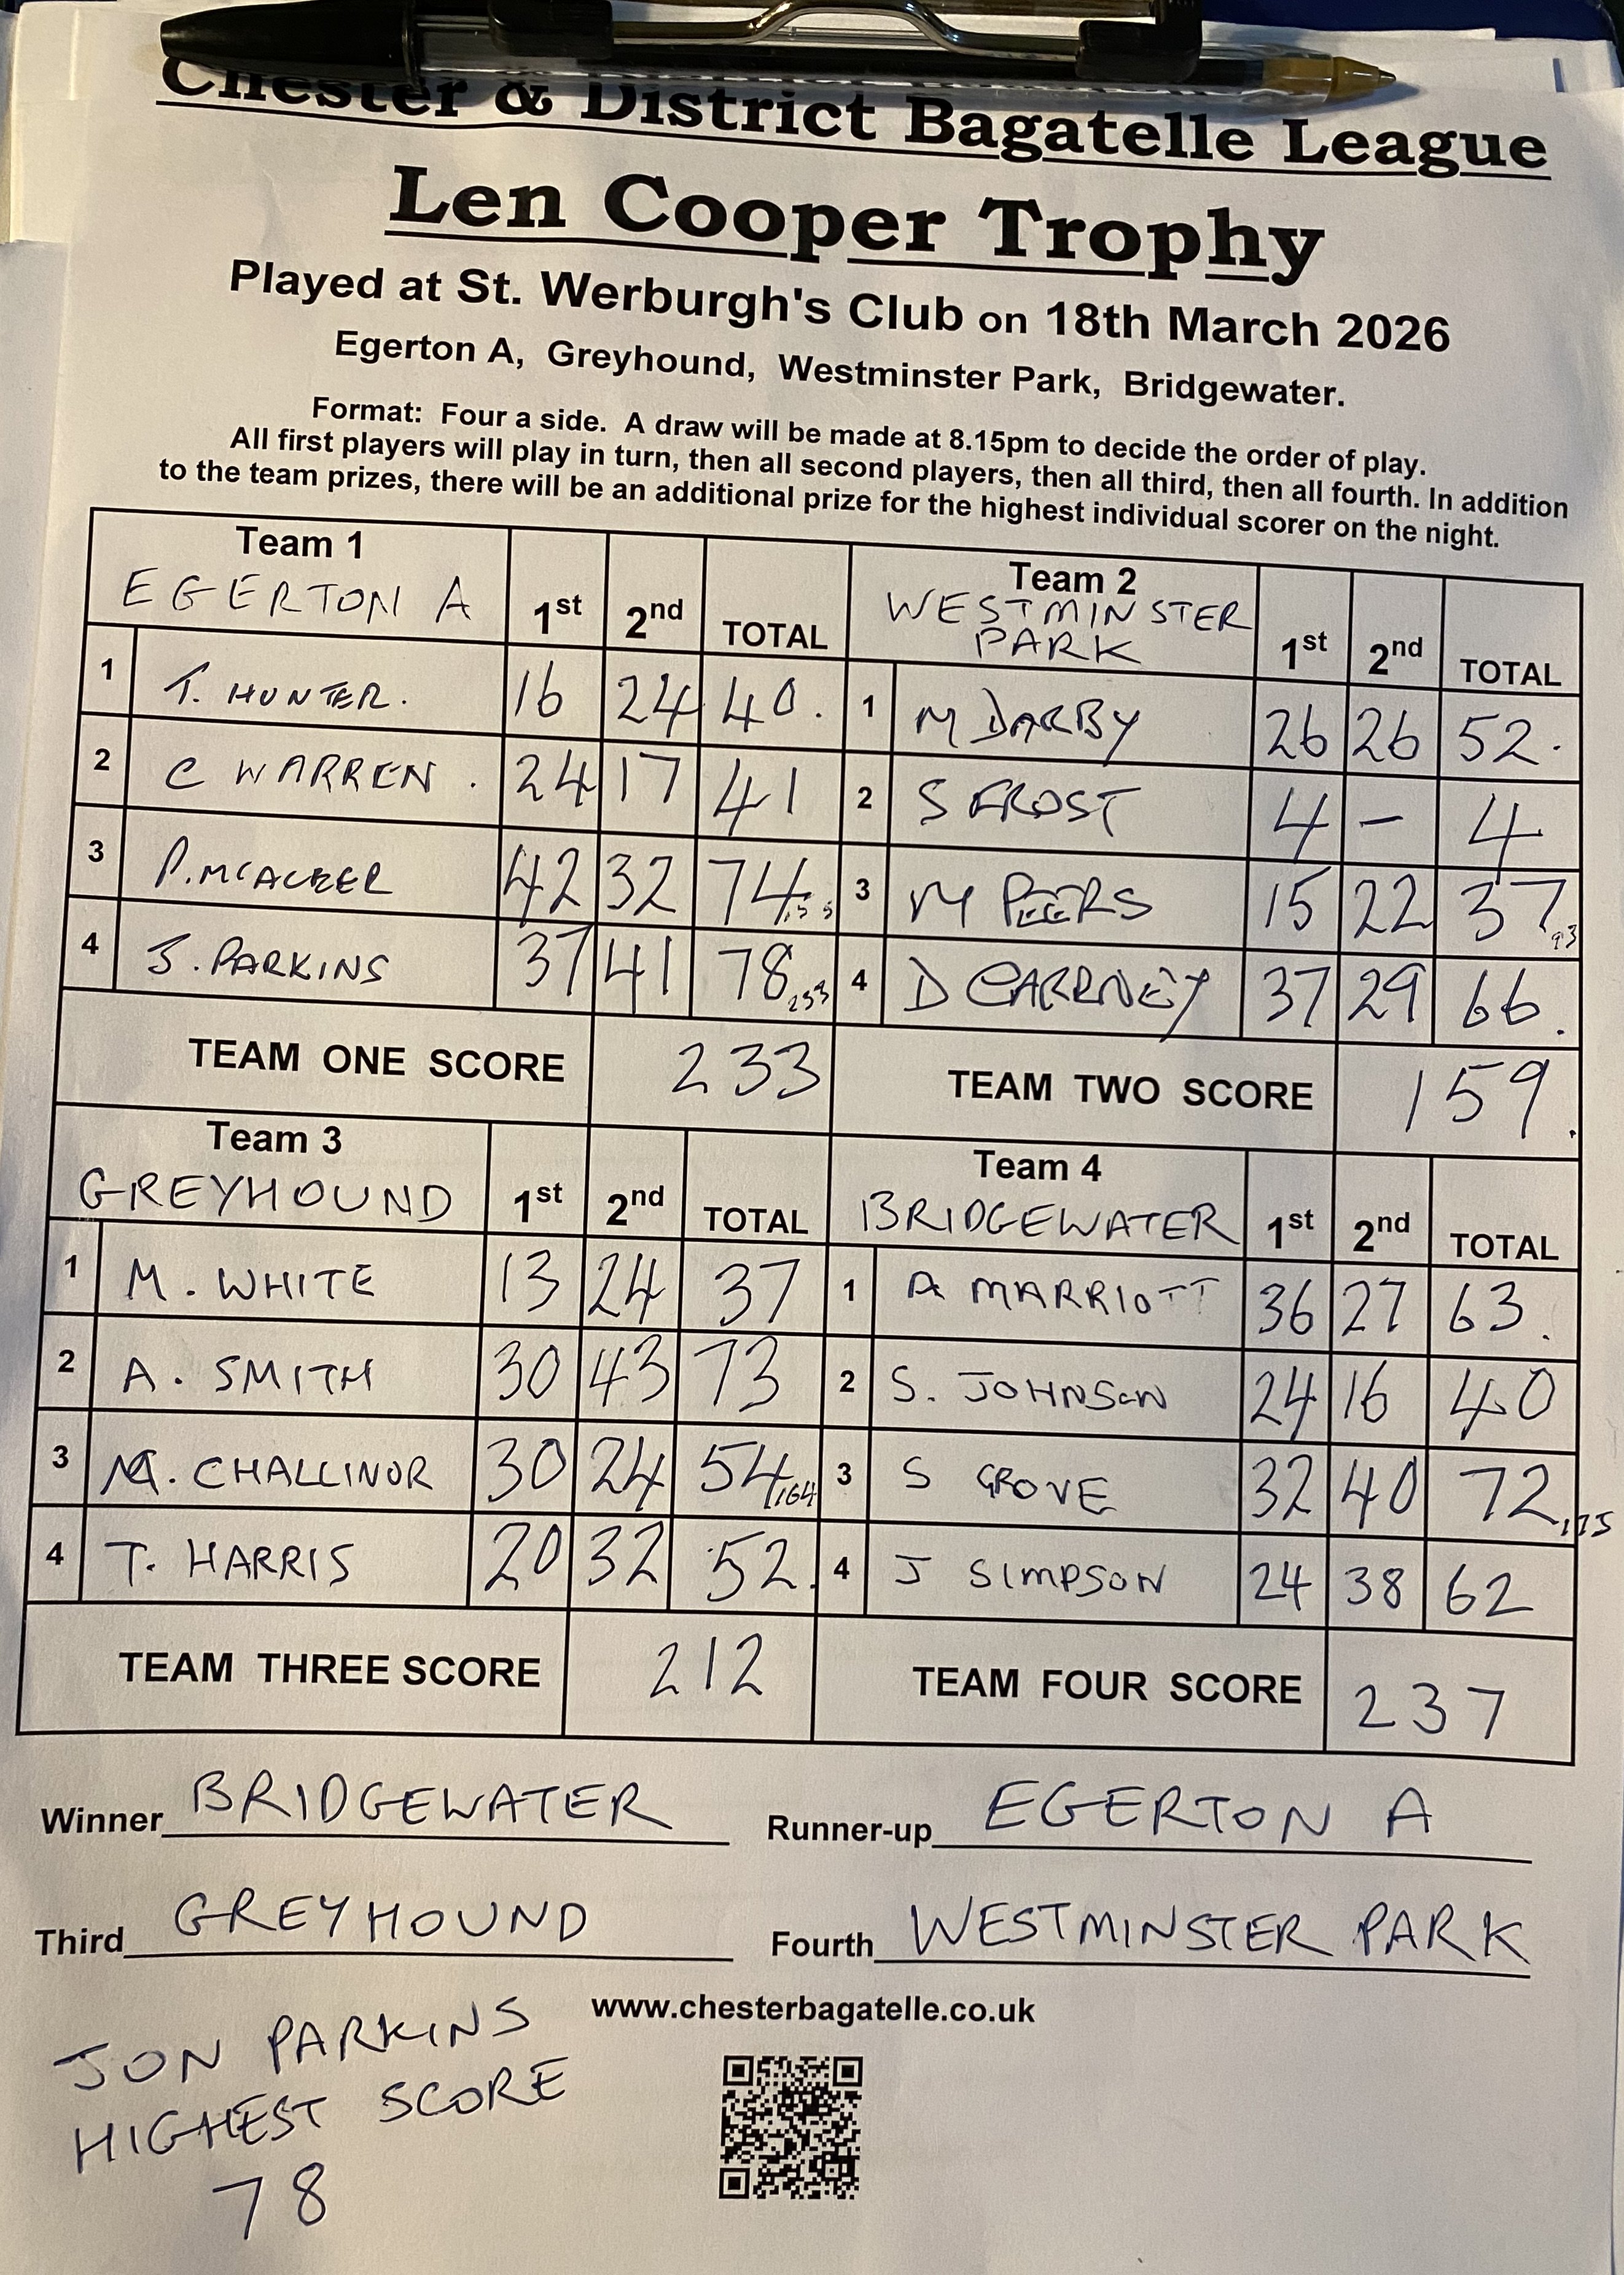 Chester & District Bagatelle League
Len Cooper Trophy
Played at St. Werburgh's Club on 18th March 2026
Egerton A, Greyhound, Westminster Park, Bridgewater.
Format: Four a side. A draw will be made at 8.15pm to decide the order of play.
All first players will play in turn, then all second players, then all third, then all fourth. In addition
to the team prizes, there will be an additional prize for the highest individual scorer on the night.
Team 1
EGERTON A 1st 2nd TOTAL
1 T. HUNTER. 16 24 40.
2 C WARREN. 24 17 41
3 P. 42 32 74
4 J. PARKINS 37 41 78
TEAM ONE SCORE 233
Team 2
WESTMINSTER
PARK 1st 2nd TOTAL
1 M DARBY 26 26 52.
2 S FROST 4 – 4
3 M PEERS 15 22 37 93
4 D 37 29 66.
TEAM TWO SCORE 159.
Team 3
GREYHOUND 1st 2nd TOTAL
1 M. WHITE 13 24 37
2 A. SMITH 30 43 73
3 CHALLINOR 30 24 54 164
4 T. HARRIS 20 32 52.
TEAM THREE SCORE 212
Team 4
BRIDGEWATER 1st 2nd TOTAL
1 A MARRIOTT 36 27 63.
2 S. JOHNSON 24 16 40
3 S GROVE 32 40 72 175
4 J SIMPSON 24 38 62
TEAM FOUR SCORE 237
Winner BRIDGEWATER
Runner-up EGERTON A
Third GREYHOUND
Fourth WESTMINSTER PARK
www.chesterbagatelle.co.uk
JON PARKINS
HIGHEST SCORE
78